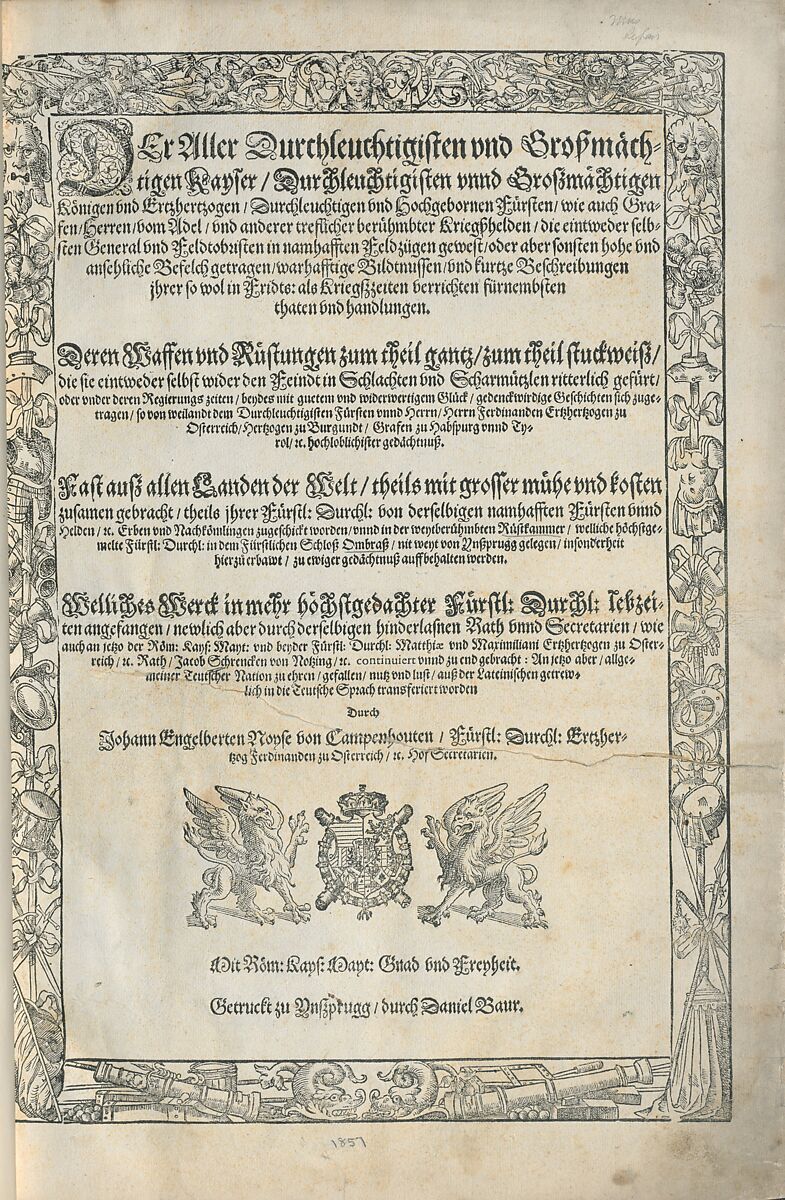 DEr Aller Durchleuchtigisten vnd Großmäch-
tigen Kayser / Durchleuchtigisten vnnd Großmächtigen
Königen vnd Ertzhertzogen / Durchleuchtigen vnd Hochgebornen Fürsten / wie auch Gra-
fen / Herren / vom Adel / vnd anderer treflicher berühmbter Kriegßhelden / die eintweder selb-
sten General vnd Feldtobristen in namhafften Feldzügen gewest / oder aber sonsten hohe vnd
ansehliche Befelch getragen / warhafftige Bildtnussen / vnd kurtze Beschreibungen
jhrer so wol in Fridts: als Kriegßzeiten verrichten fürnembsten
thaten vnd handlungen.
Deren Waffen vnd Rüstungen zum theil gantz / zum theil stuckweiß /
die sie eintweder selbst wider den Feindt in Schlachten vnd Scharmützlen ritterlich gefürt /
oder vnder deren Regierungs zeiten / beydes mit guetem vnd widerwertigem Glück / gedenckwirdige Geschichten sich zuge-
tragen / so von weilandt dem Durchleuchtigisten Fürsten vnnd Herrn / Herrn Ferdinanden Ertzhertzogen zu
Osterreich / Hertzogen zu Burgundt / Grafen zu Habspurg vnnd Ty-
rol / ꝛc. hochloblichister gedächtnuß.
Fast auß allen Landen der Welt / theils mit grosser mühe vnd kosten
zusamen gebracht / theils jhrer Fürstl: Durchl: von derselbigen namhafften Fürsten vnnd
Helden / ꝛc. Erben vnd Nachkömlingen zugeschickt worden / vnnd in der weytberühmbten Rüstkammer / welliche höchstge-
melte Fürstl: Durchl: in dem Fürstlichen Schloß Ombraß / nit weyt von Ynßprugg gelegen / insonderheit
hierzů erbawt / zu ewiger gedächtnuß auffbehalten werden.
Welliches Werck in mehr höchstgedachter Fürstl: Durchl: lebzei-
ten angefangen / newlich aber durch derselbigen hinderlaßnen Rath vnnd Secretarien / wie
auch an jetzo der Röm: Kays: Mayt: vnd beyder Fürstl: Durchl: Matthiæ vnd Maximiliani Ertzhertzogen zu Oster-
reich / ꝛc. Rath / Jacob Schrencken von Notzing / ꝛc. continuiert vnnd zu end gebracht: An jetzo aber / allge-
meiner Teutscher Nation zu ehren / gefallen / nutz vnd lust / auß der Lateinischen getrew-
lich in die Teutsche Sprach transferiert worden
Durch
Johann Engelberten Noyse von Campenhouten / Fürstl: Durchl: Ertzher-
tzog Ferdinanden zu Osterreich / ꝛc. Hof Secretarien.
Mit Röm: Kays: Mayt: Gnad vnd Freyheit.
Getruckt zu Ynßprugg / durch Daniel Baur.
1857